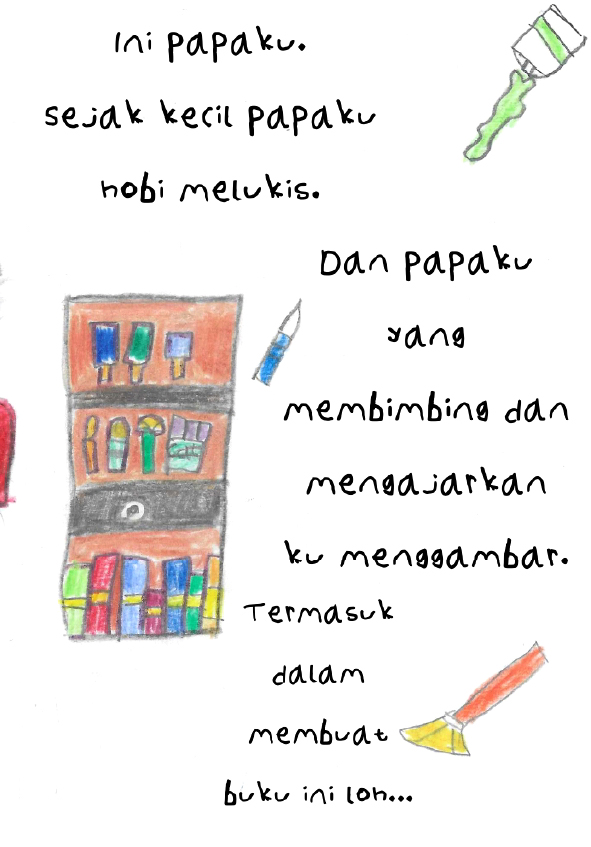 Ini papaku.
sejak kecil papaku
hobi melukis.
Dan papaku
yang
membimbing dan
mengajarkan
ku menggambar.
Termasuk
dalam
membuat
buku ini loh...